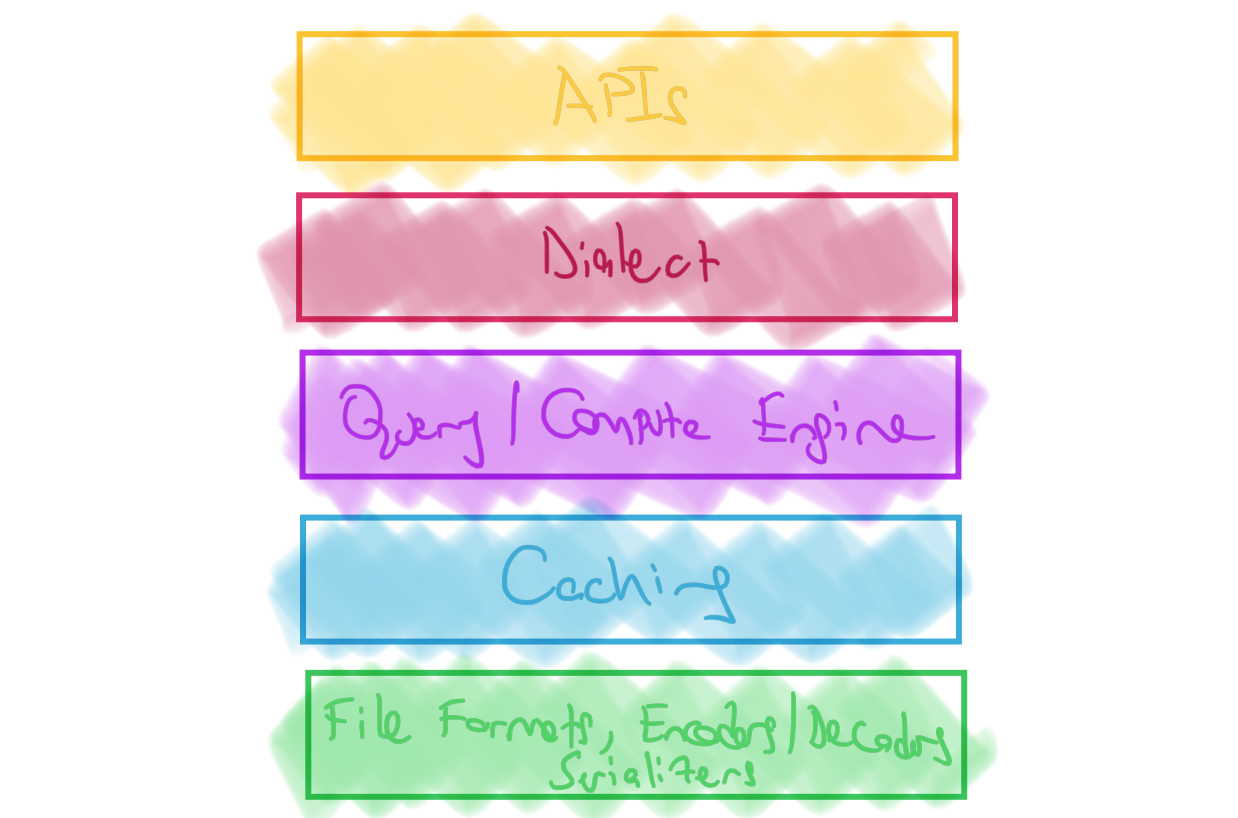 APIs
Dialect
Query / Compute Engine
Caching
File Formats, Encoders/Decoders
Serializers